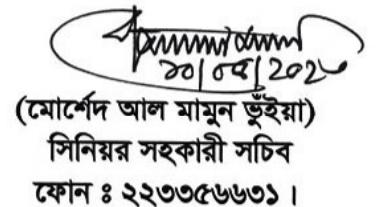 (মোর্শেদ আল মামুন ভূঁইয়া)
সিনিয়র সহকারী সচিব
ফোন ঃ ২২৩৩৫৬৬৩১।